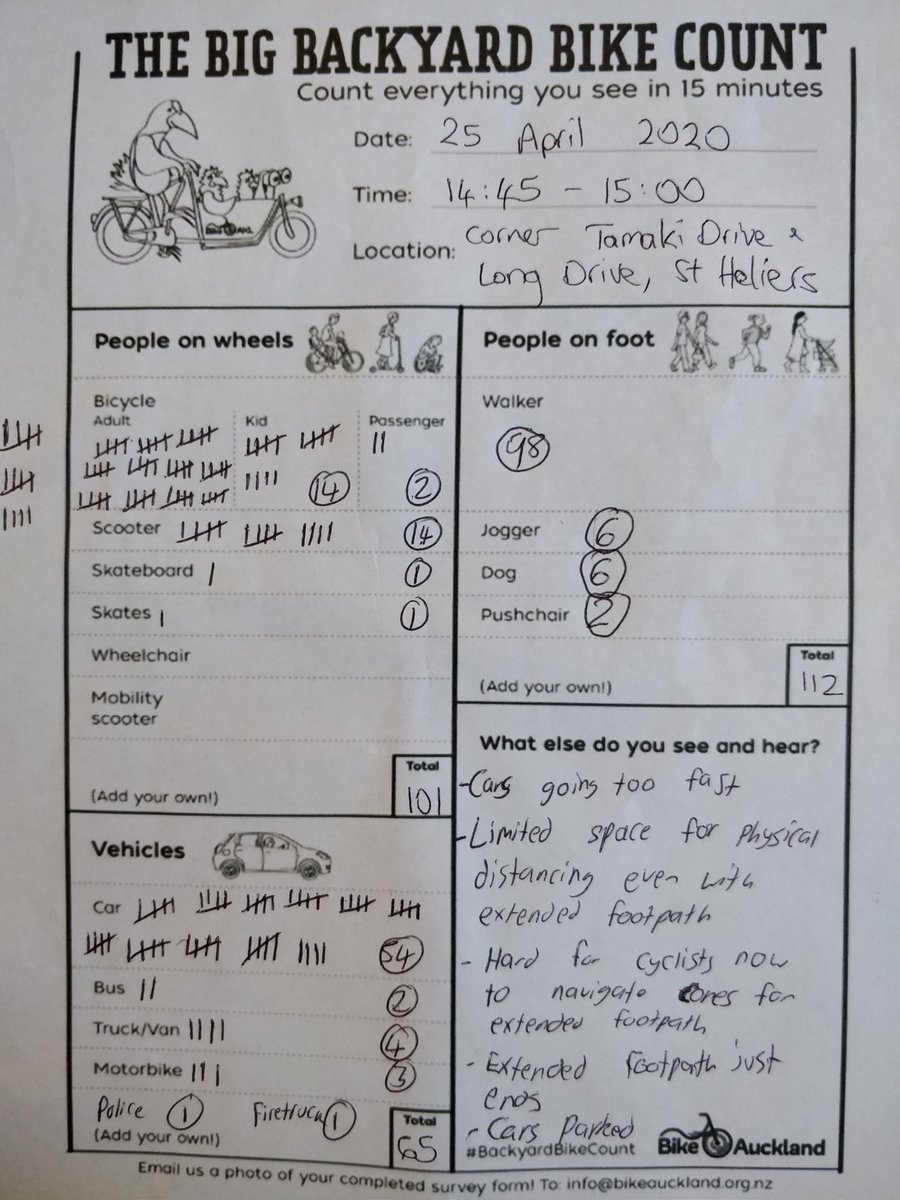 THE BIG BACKYARD BIKE COUNT
Count everything you see in 15 minutes
Date: 25 April 2020
Time: 14:45 - 15:00
Location: corner Tamaki Drive &
Long Drive, St Heliers
People on wheels
Bicycle
Adult Kid Passenger
14 2
Scooter 14
Skateboard 1
Skates 1
Wheelchair
Mobility
scooter
Total
(Add your own!) 101
Vehicles
Car
54
Bus 2
Truck/Van 4
Motorbike 3
Police 1 Firetruck 1
Total
(Add your own!) 65
People on foot
Walker
98
Jogger 6
Dog 6
Pushchair 2
Total
(Add your own!) 112
What else do you see and hear?
- Cars going too fast
- Limited space for physical
distancing even with
extended footpath
- Hard for cyclists now
to navigate cones for
extended footpath
- Extended footpath just
ends
- Cars Parked
#BackyardBikeCount Bike Auckland
Email us a photo of your completed survey form! To: info@bikeauckland.org.nz